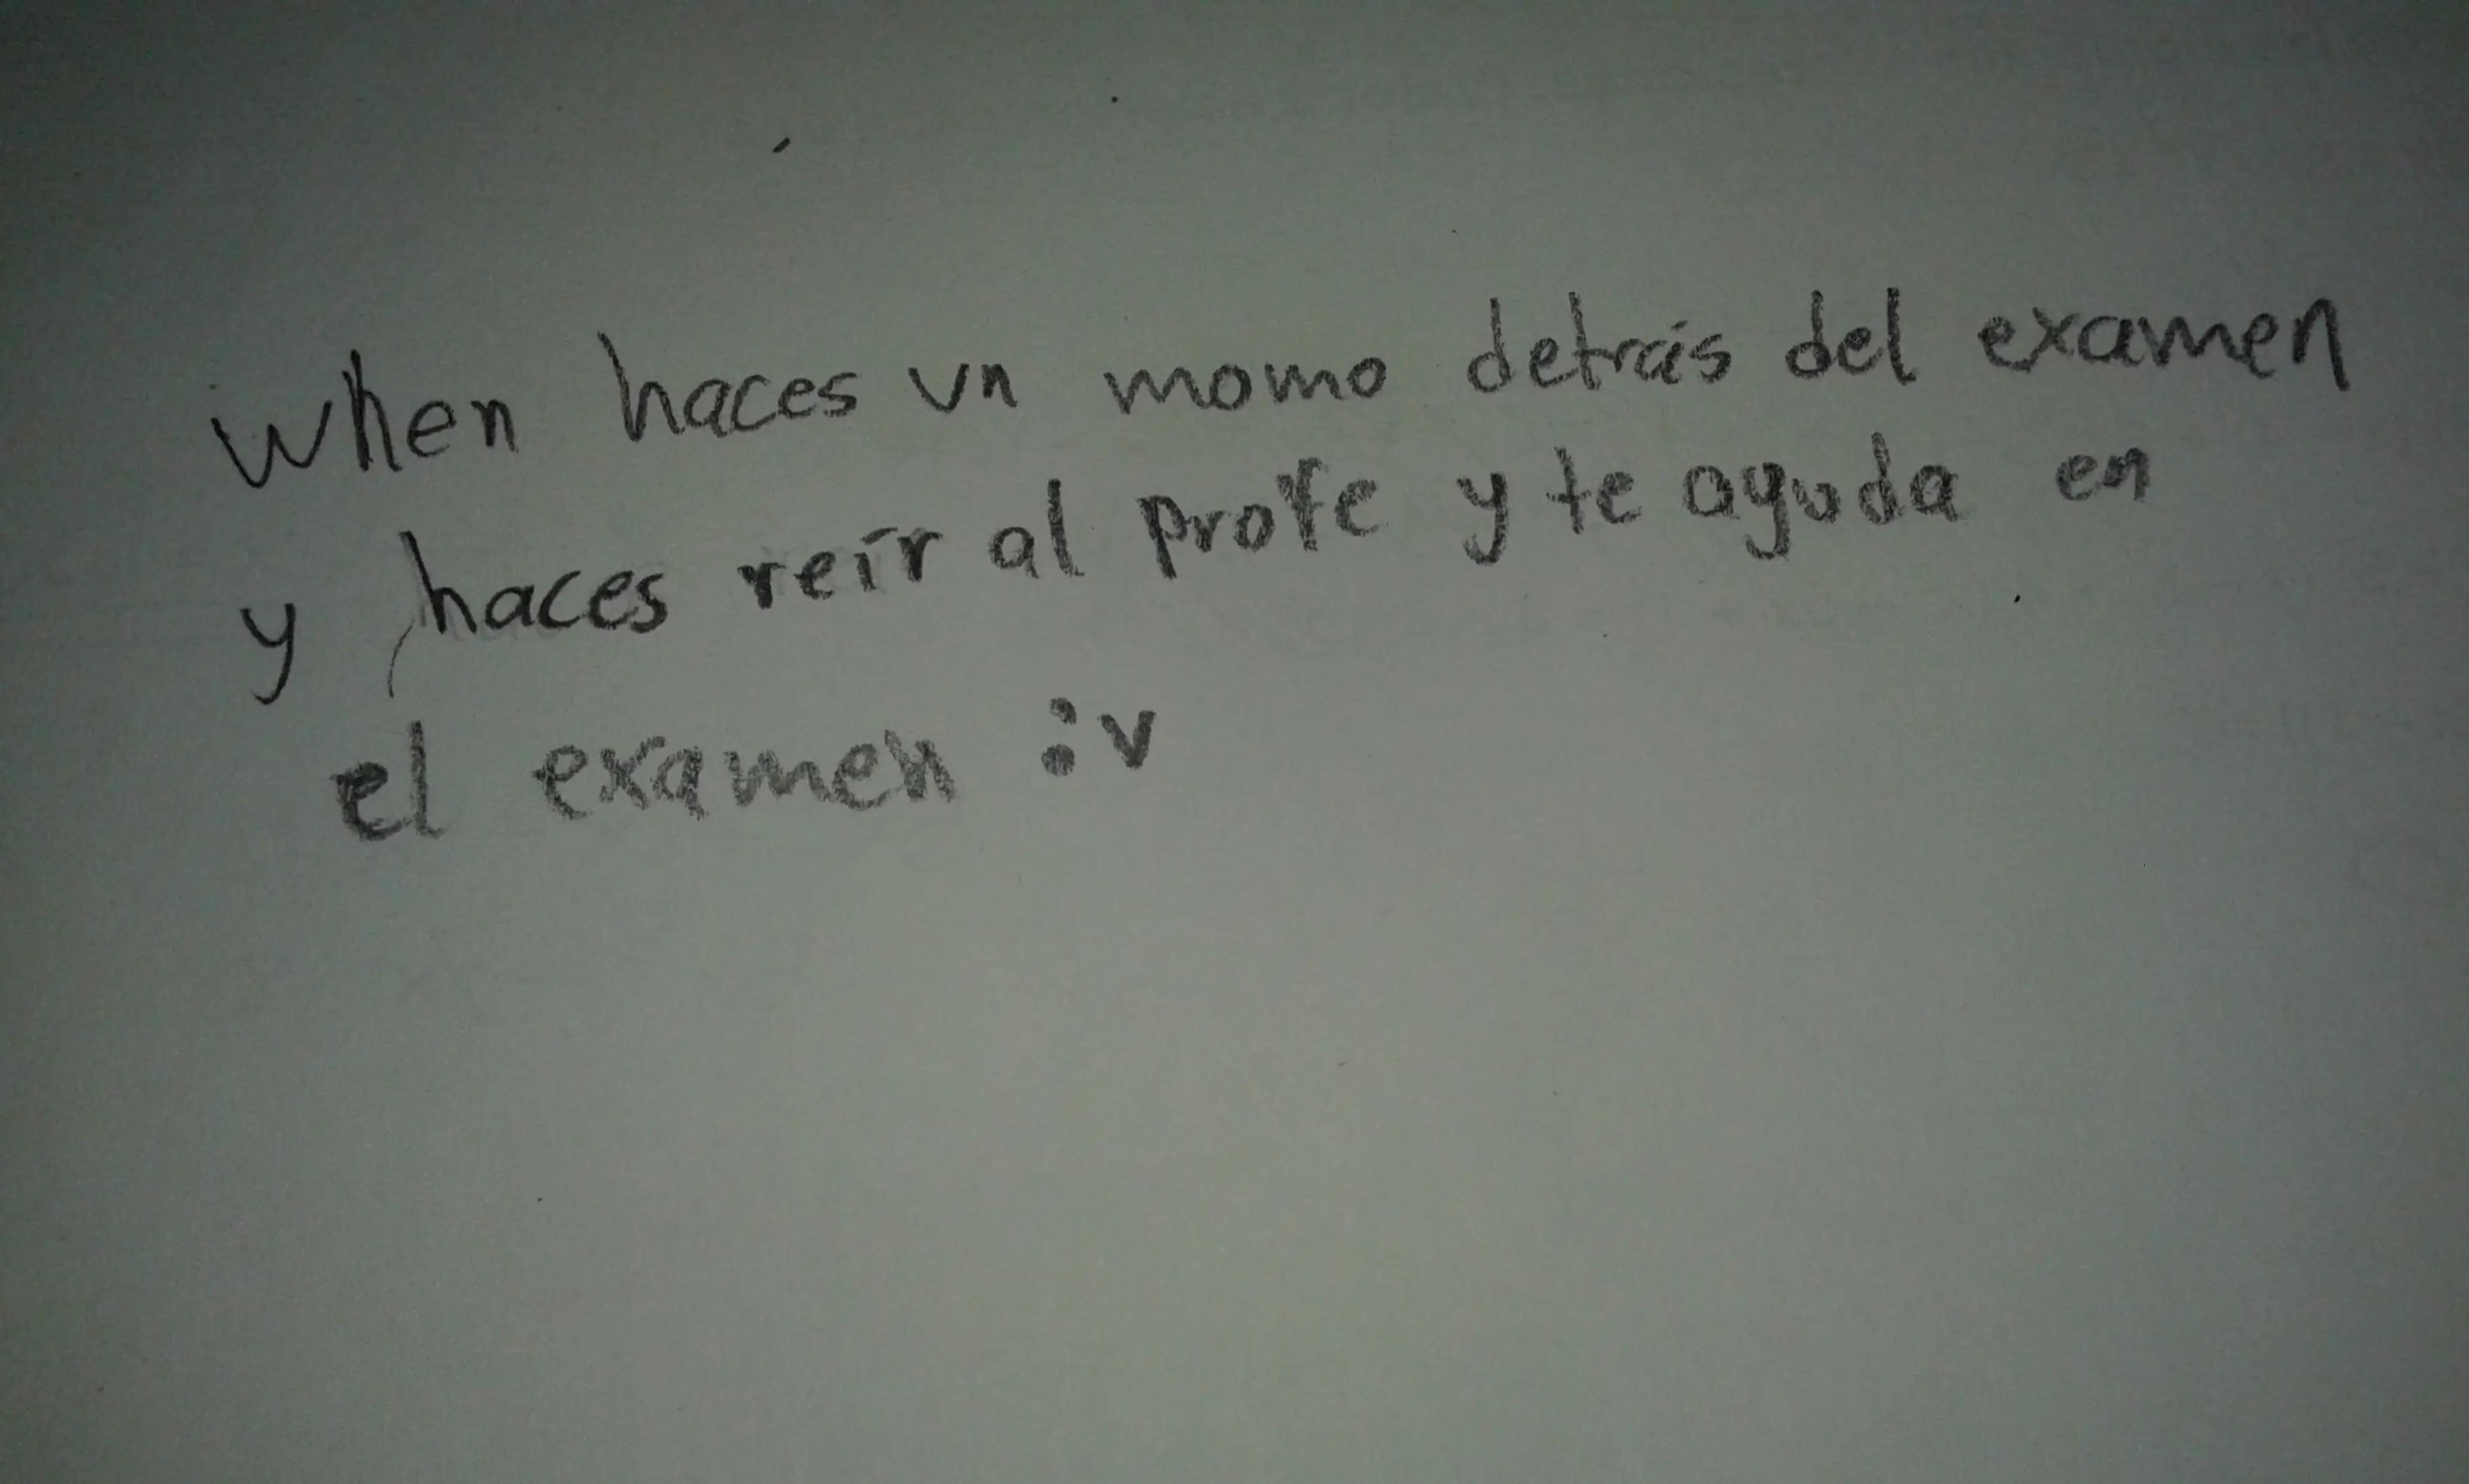 when haces un momo detrás del examen
y haces reír al profe y te ayuda en
el examen :v